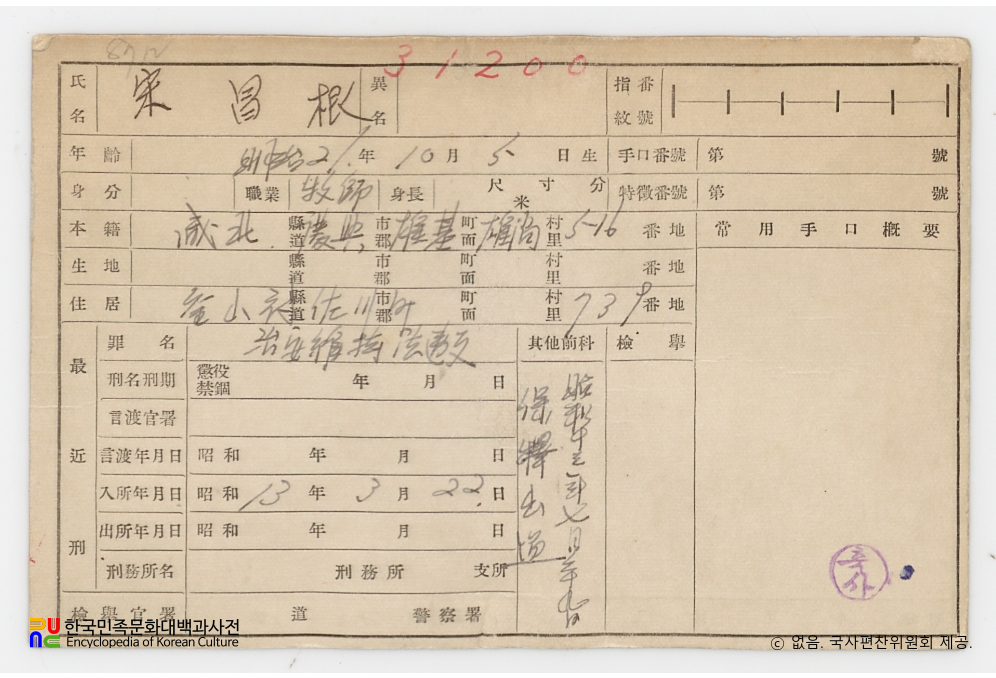 31200
氏名 宋昌根 異名 指紋番號
年齡 明治21年10月5日生 手口番號 第 號
身分 職業 牧師 身長 尺寸分 米 特徵番號 第 號
本籍 咸北 縣道 慶興 市郡 雄基 町面 雄尚 村里 5-16 番地 常用手口概要
生地 縣道 市郡 町面 村里 番地
住居 釜山府佐川町 縣道 市郡 町面 村里 739 番地
最近刑
罪名 治安維持法違反 其他前科 檢擧
刑名刑期 懲役 禁錮 年 月 日
言渡官署
言渡年月日 昭和 年 月 日
入所年月日 昭和 13年 3月 22日
出所年月日 昭和 年 月 日
刑務所名 刑務所 支所
檢擧官署 道 警察署
昭和十三年七月二十九日
保釋出
한국민족문화대백과사전
Encyclopedia of Korean Culture
ⓒ 없음. 국사편찬위원회 제공.